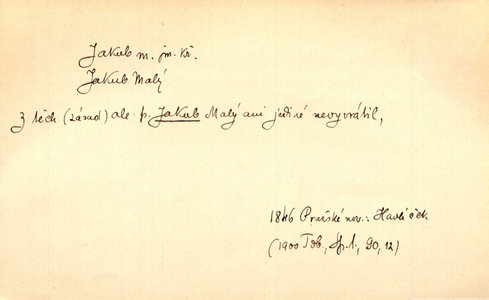 Jakub m. jm. kř.
Jakub Malý
Z těch (zásad) ale p. Jakub Malý ani jediné nevyvrátil,
1846 Pražské nov.: Havlíček
(1900 Tob., Sp. 1, 90, 12)